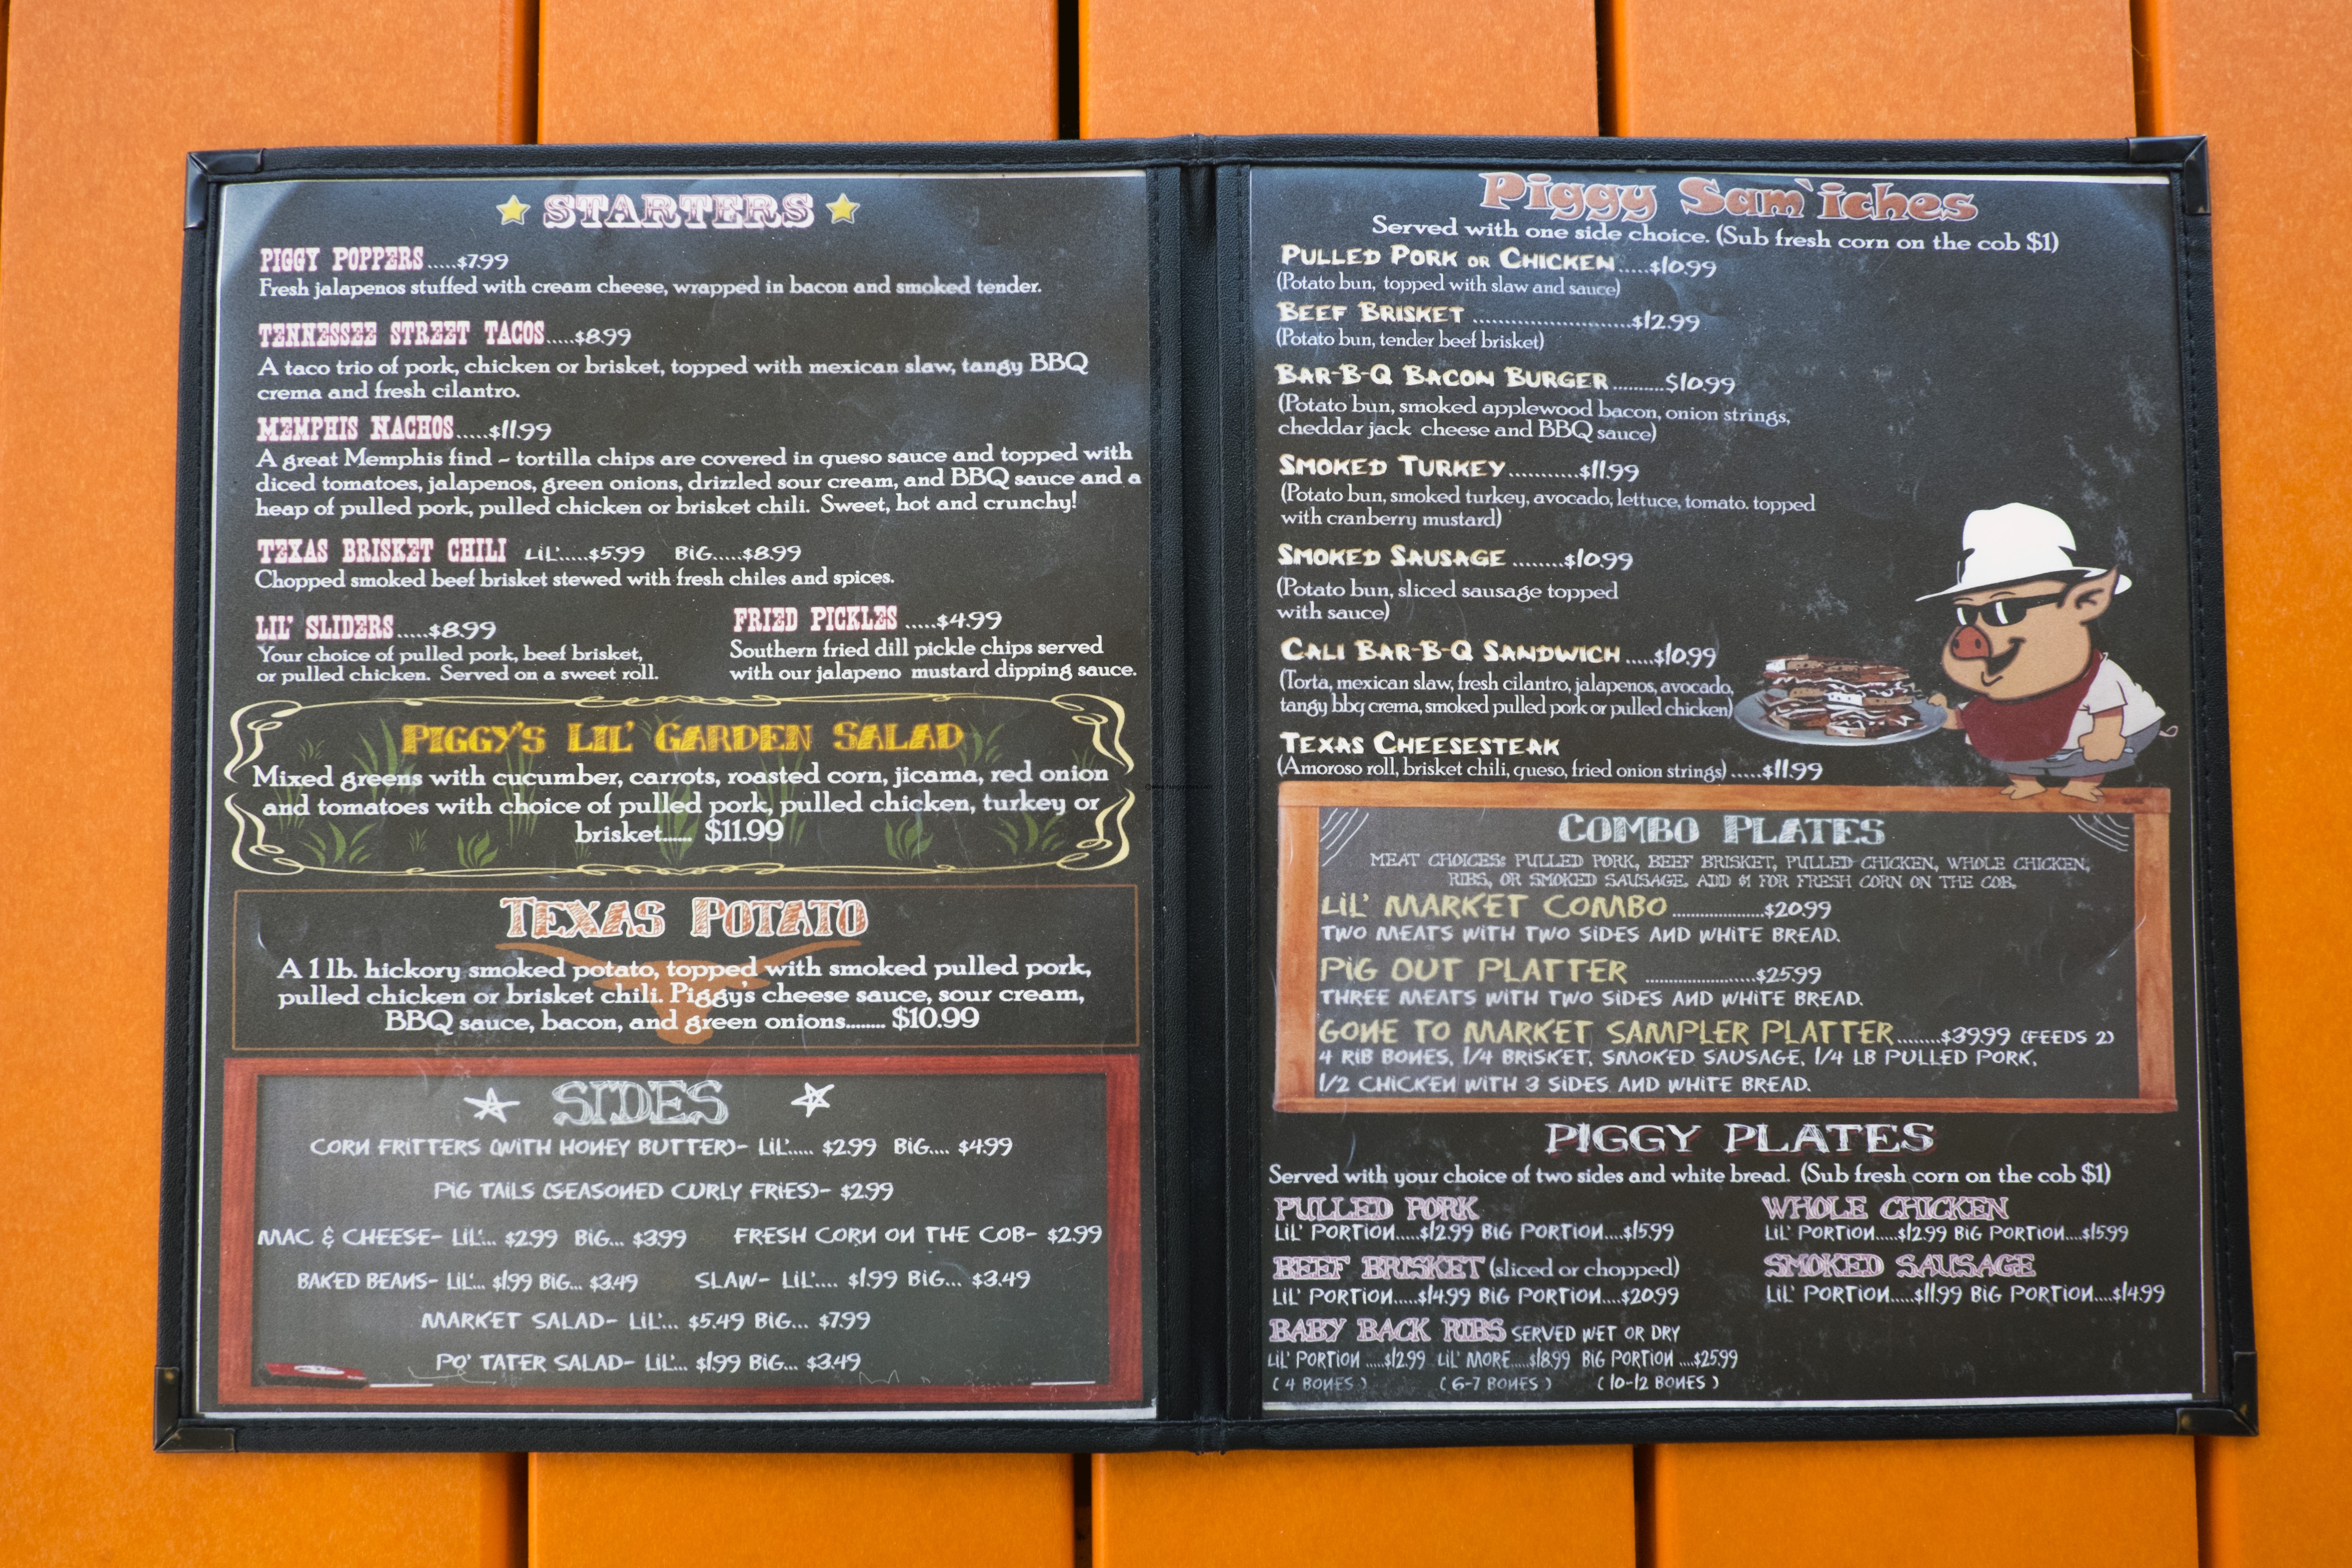 STARTERS
PIGGY POPPERS.....$7.99
Fresh jalapenos stuffed with cream cheese, wrapped in bacon and smoked tender.
TENNESSEE STREET TACOS.....$8.99
A taco trio of pork, chicken or brisket, topped with mexican slaw, tangy BBQ
crema and fresh cilantro.
MEMPHIS NACHOS.....$11.99
A great Memphis find ~ tortilla chips are covered in queso sauce and topped with
diced tomatoes, jalapenos, green onions, drizzled sour cream, and BBQ sauce and a
heap of pulled pork, pulled chicken or brisket chili. Sweet, hot and crunchy!
TEXAS BRISKET CHILI LIL'.....$5.99 BIG.....$8.99
Chopped smoked beef brisket stewed with fresh chiles and spices.
LIL' SLIDERS.....$8.99
Your choice of pulled pork, beef brisket,
or pulled chicken. Served on a sweet roll.
FRIED PICKLES .....$4.99
Southern fried dill pickle chips served
with our jalapeno mustard dipping sauce.
PIGGY'S LIL' GARDEN SALAD
Mixed greens with cucumber, carrots, roasted corn, jicama, red onion
and tomatoes with choice of pulled pork, pulled chicken, turkey or
brisket...... $11.99
TEXAS POTATO
A 1 lb. hickory smoked potato, topped with smoked pulled pork,
pulled chicken or brisket chili. Piggy's cheese sauce, sour cream,
BBQ sauce, bacon, and green onions........ $10.99
SIDES
CORN FRITTERS (WITH HONEY BUTTER)- LIL'..... $2.99 BIG.... $4.99
PIG TAILS (SEASONED CURLY FRIES)- $2.99
MAC & CHEESE- LIL'... $2.99 BIG... $3.99 FRESH CORN ON THE COB- $2.99
BAKED BEANS- LIL'... $1.99 BIG... $3.49 SLAW- LIL'.... $1.99 BIG... $3.49
MARKET SALAD- LIL'... $5.49 BIG... $7.99
PO' TATER SALAD- LIL'... $1.99 BIG... $3.49
Piggy Sam'iches
Served with one side choice. (Sub fresh corn on the cob $1)
PULLED PORK OR CHICKEN.....$10.99
(Potato bun, topped with slaw and sauce)
BEEF BRISKET ..............................$12.99
(Potato bun, tender beef brisket)
BAR-B-Q BACON BURGER..........$10.99
(Potato bun, smoked applewood bacon, onion strings,
cheddar jack cheese and BBQ sauce)
SMOKED TURKEY...........$11.99
(Potato bun, smoked turkey, avocado, lettuce, tomato. topped
with cranberry mustard)
SMOKED SAUSAGE ........$10.99
(Potato bun, sliced sausage topped
with sauce)
CALI BAR-B-Q SANDWICH .....$10.99
(Torta, mexican slaw, fresh cilantro, jalapenos, avocado,
tangy bbq crema, smoked pulled pork or pulled chicken)
TEXAS CHEESESTEAK
(Amoroso roll, brisket chili, queso, fried onion strings) .....$11.99
COMBO PLATES
MEAT CHOICES: PULLED PORK, BEEF BRISKET, PULLED CHICKEN, WHOLE CHICKEN,
RIBS, OR SMOKED SAUSAGE. ADD $1 FOR FRESH CORN ON THE COB.
LIL' MARKET COMBO....................$20.99
TWO MEATS WITH TWO SIDES AND WHITE BREAD.
PIG OUT PLATTER ........................$25.99
THREE MEATS WITH TWO SIDES AND WHITE BREAD.
GONE TO MARKET SAMPLER PLATTER.........$39.99 (FEEDS 2)
4 RIB BONES, 1/4 BRISKET, SMOKED SAUSAGE, 1/4 LB PULLED PORK,
1/2 CHICKEN WITH 3 SIDES AND WHITE BREAD.
PIGGY PLATES
Served with your choice of two sides and white bread. (Sub fresh corn on the cob $1)
PULLED PORK
LIL' PORTION.....$12.99 BIG PORTION....$15.99
WHOLE CHICKEN
LIL' PORTION.....$12.99 BIG PORTION....$15.99
BEEF BRISKET (sliced or chopped)
LIL' PORTION.....$14.99 BIG PORTION....$20.99
SMOKED SAUSAGE
LIL' PORTION.....$11.99 BIG PORTION....$14.99
BABY BACK RIBS SERVED WET OR DRY
LIL' PORTION .....$12.99 LIL' MORE....$18.99 BIG PORTION ....$25.99
( 4 BONES ) ( 6-7 BONES ) ( 10-12 BONES )